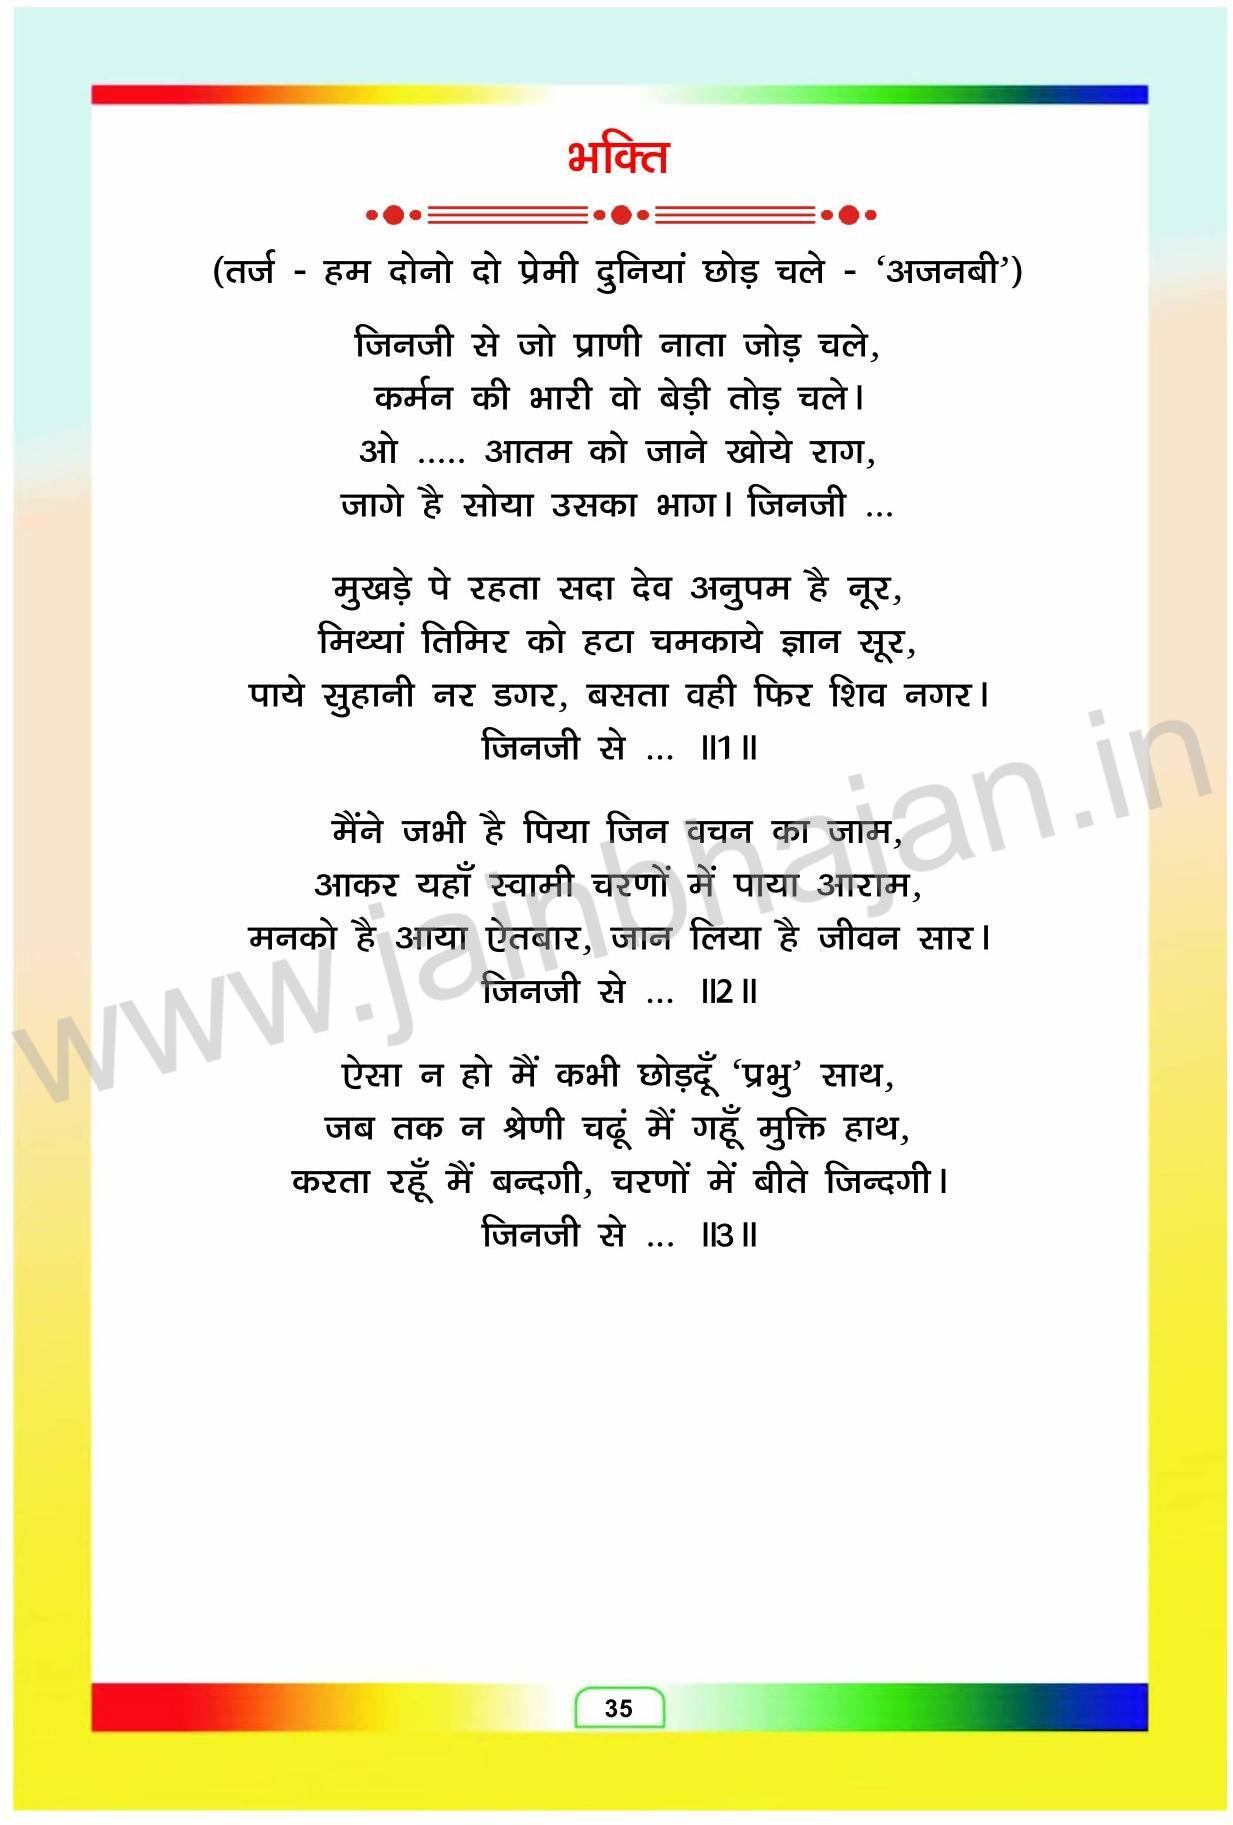 भक्ति
(तर्ज - हम दोनो दो प्रेमी दुनियां छोड़ चले - ‘अजनबी’)
जिनजी से जो प्राणी नाता जोड़ चले,
कर्मन की भारी वो बेड़ी तोड़ चले।
ओ ..... आतम को जाने खोये राग,
जागे है सोया उसका भाग। जिनजी ...
मुखड़े पे रहता सदा देव अनुपम है नूर,
मिथ्यां तिमिर को हटा चमकाये ज्ञान सूर,
पाये सुहानी नर डगर, बसता वही फिर शिव नगर।
जिनजी से ... ॥1॥
मैंने जभी है पिया जिन वचन का जाम,
आकर यहाँ स्वामी चरणों में पाया आराम,
मनको है आया ऐतबार, जान लिया है जीवन सार।
जिनजी से ... ॥2॥
www.jainbhajan.in
ऐसा न हो मैं कभी छोड़दूँ ‘प्रभु’ साथ,
जब तक न श्रेणी चढ़ूं मैं गहूँ मुक्ति हाथ,
करता रहूँ मैं बन्दगी, चरणों में बीते जिन्दगी।
जिनजी से ... ॥3॥
35